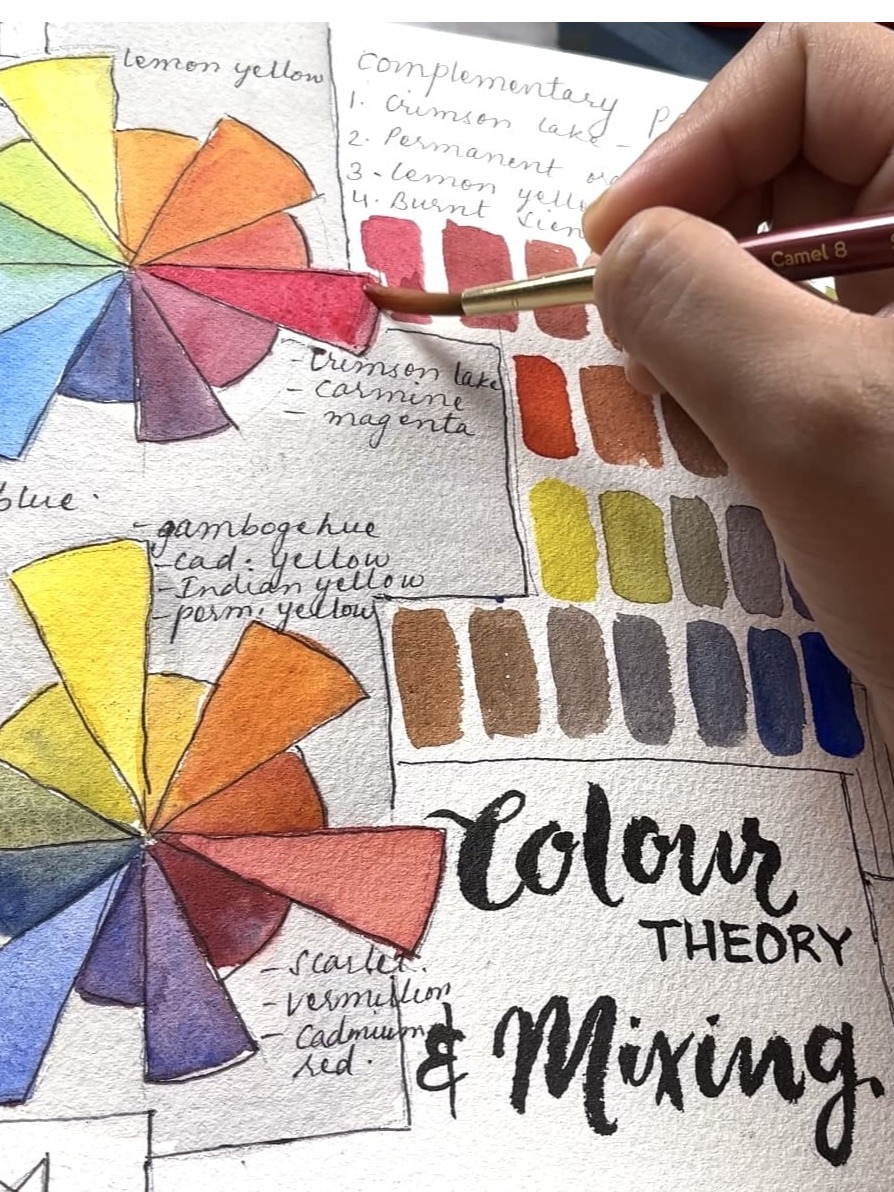 lemon yellow
Complementary
1. Crimson lake -
2. Permanent
3. lemon
4. Burnt
Camel 8
- Crimson lake
- carmine
- magenta
blue.
- gamboge hue
- cad. yellow
- Indian yellow
- perm. yellow
- Scarlet.
- vermillion
- Cadmium
red.
Colour
THEORY
& Mixing.